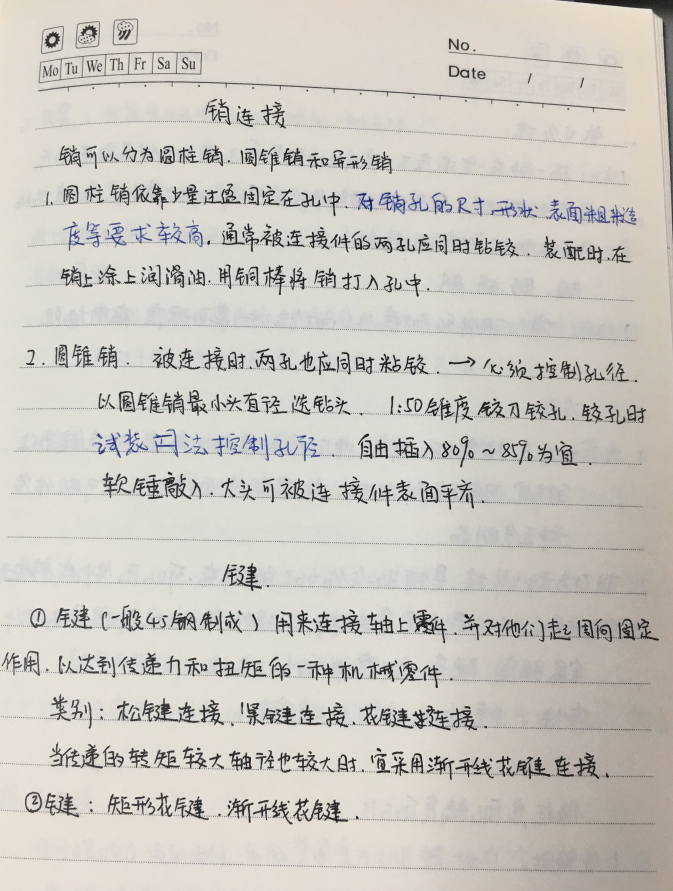 No.
Mo Tu We Th Fr Sa Su
Date / /
销连接
销可以分为圆柱销.圆锥销和异形销
1. 圆柱销依靠少量过盈固定在孔中.对销孔的尺寸.形状 表面粗糙
度等要求较高,通常被连接件的两孔应同时钻铰.装配时.在
销上涂上润滑油.用铜棒将销打入孔中.
2. 圆锥销.被连接时.两孔也应同时粘铰.→必须控制孔径.
以圆锥销最小头直径选钻头. 1:50锥度铰刀铰孔.铰孔时
试装 法控制孔径.自由插入80%~85%为宜.
软锤敲入.大头可被连接件表面平齐.
键.
① 键(一般45钢制成)用来连接轴上零件.并对他们起周向固定
作用.以达到传递力和扭矩的一种机械零件.
类别:松键连接.紧键连接.花键连接.
当传递的转矩较大轴径也较大时.宜采用渐开线花键连接.
②键:矩形花键.渐开线花键.